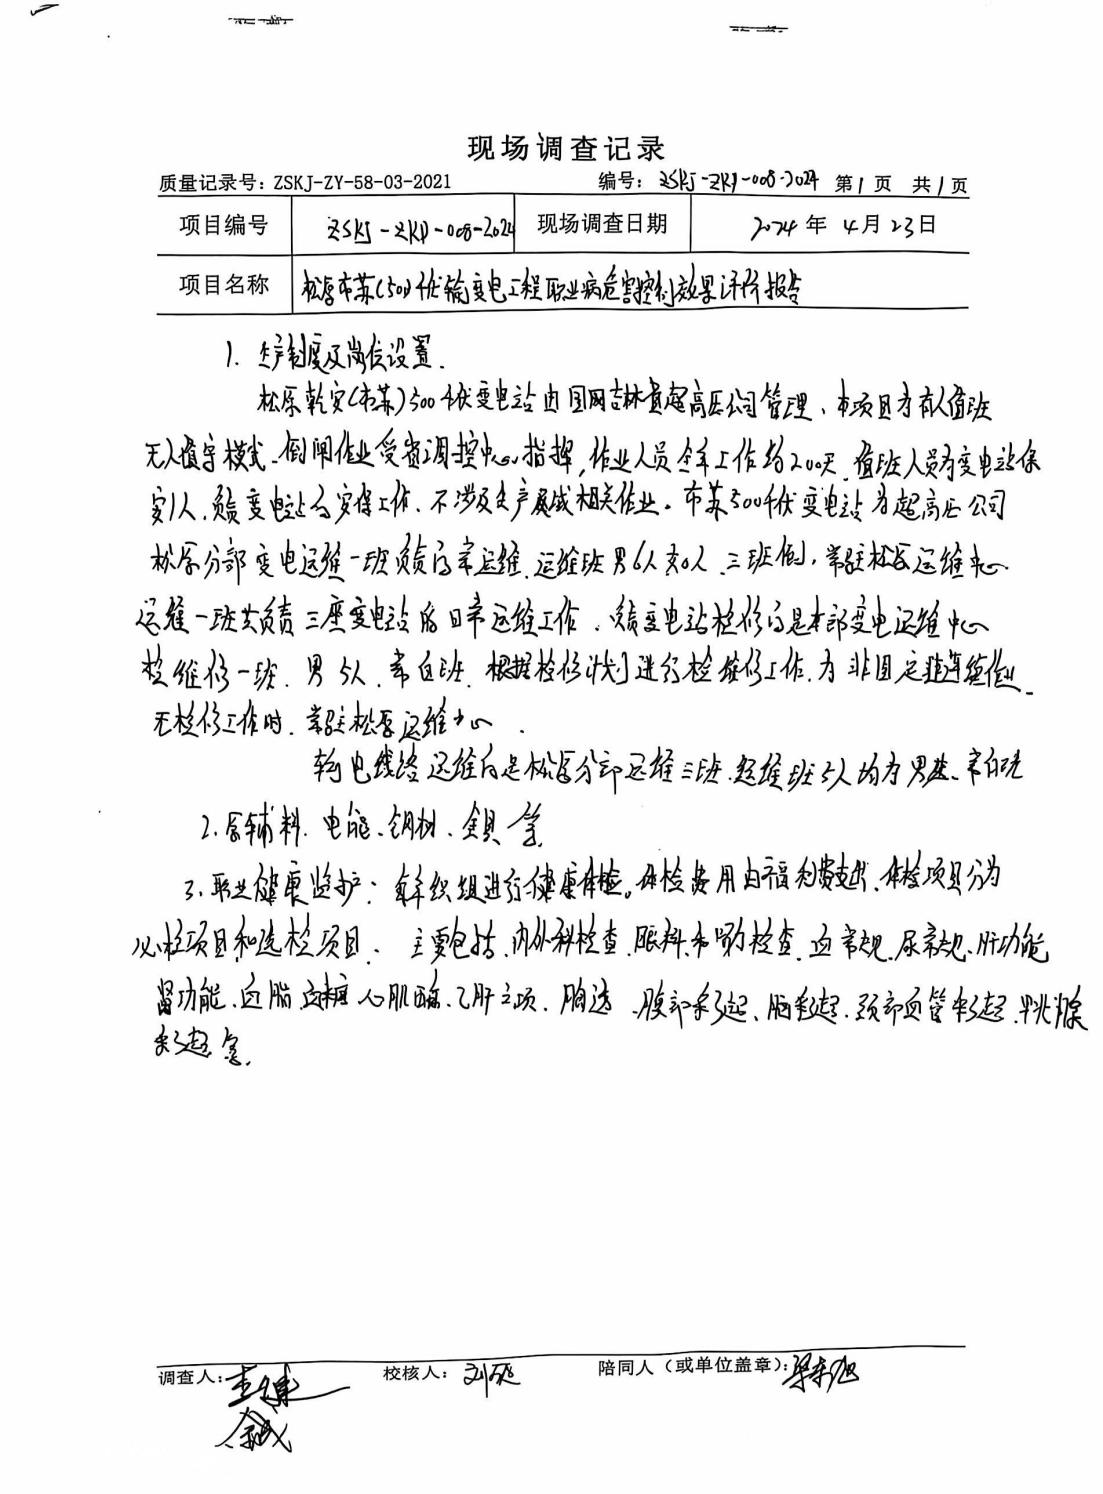 现场调查记录
质量记录号：ZSKJ-ZY-58-03-2021 编号：ZSKJ-ZKP-008-2024 第1页 共1页
项目编号 ZSKJ-ZKP-008-2024 现场调查日期 2024年4月23日
项目名称 松原布苏(500)千伏输变电工程职业病危害控制效果评价报告
1. 生产制度及岗位设置.
松原乾安(布苏)500千伏变电站由国网吉林省超高压公司管理、本项目为有人值班
无人值守模式、倒闸作业受省调控中心指挥,作业人员全年工作约200天.值班人员为变电站保
安1人.负责变电站的安保工作、不涉及生产及相关作业。布苏500千伏变电站为超高压公司
松原分部变电运维一班负责日常运维.运维班男6人女0人、三班倒,常驻松原运维中心
运维一班共负责三座变电站的日常运维工作.负责变电站检修的是本部变电运维中心
检维修一班.男5人.常白班.根据检修计划进行检维修工作.为非固定非连续作业.
无检修工作时.常驻松原运维中心.
输电线路运维的是松原分部运维三班.运维班5人均为男.常白班
2.原辅料.电能、钢材、金具等
3.职业健康监护：每年组织进行健康体检。体检费用由福利费支出.体检项目分为
必检项目和选检项目、主要包括.内外科检查.眼科和耳鼻检查.血常规.尿常规、肝功能
肾功能.血脂.血糖.心肌酶、乙肝三项、胸透、腹部彩超、脑彩超.颈部血管彩超.甲状腺
彩超等.
调查人: 校核人: 陪同人（或单位盖章）:梁东旭